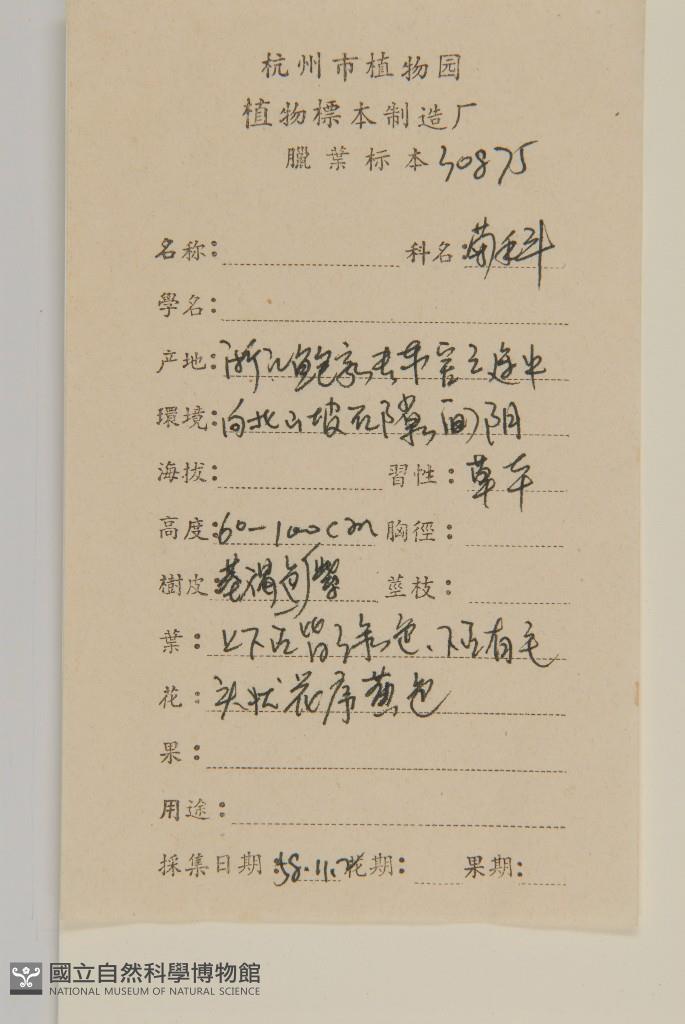 杭州市植物园
植物標本制造厂
臘葉标本 30875
名称： 科名：菊科
學名：
产地：浙江
環境：向北山坡石隙 阴
海拔： 習性：草本
高度：60-100cm 胸徑：
樹皮： 茎褐色 紫 莖枝：
葉：上下面皆绿色、下面有毛
花：头状花序黄色
果：
用途：
採集日期：58.11. 花期： 果期：
國立自然科學博物館
NATIONAL MUSEUM OF NATURAL SCIENCE